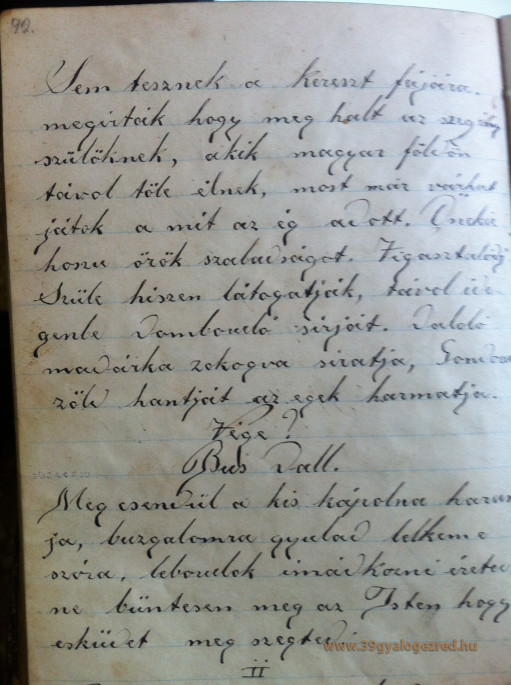 92.
Sem tesznek a kereszt fájára.
megirták hogy meg halt az szegény
szülöknek, akik magyar földön
távol töle élnek, most már várhat
játok a mit az ég adott. Öneki
hosu örök szabadságot. Vigasztalódj
Szüle hiszen látogatják, távol ide
genbe domboruló sirjóit. Daloló
madárka zokogva siratja, Gondos
zöld hantját az egek harmatja.
Vége?
Bus Dall.
Meg csendül a kis kápolna haran
ja, buzgalomra gyulad lelkem e
szóra, leborulok imádkozni érted
ne büntesen meg az Isten hogy
esküdet meg szegted.
www.39gyalogezred.hu
II